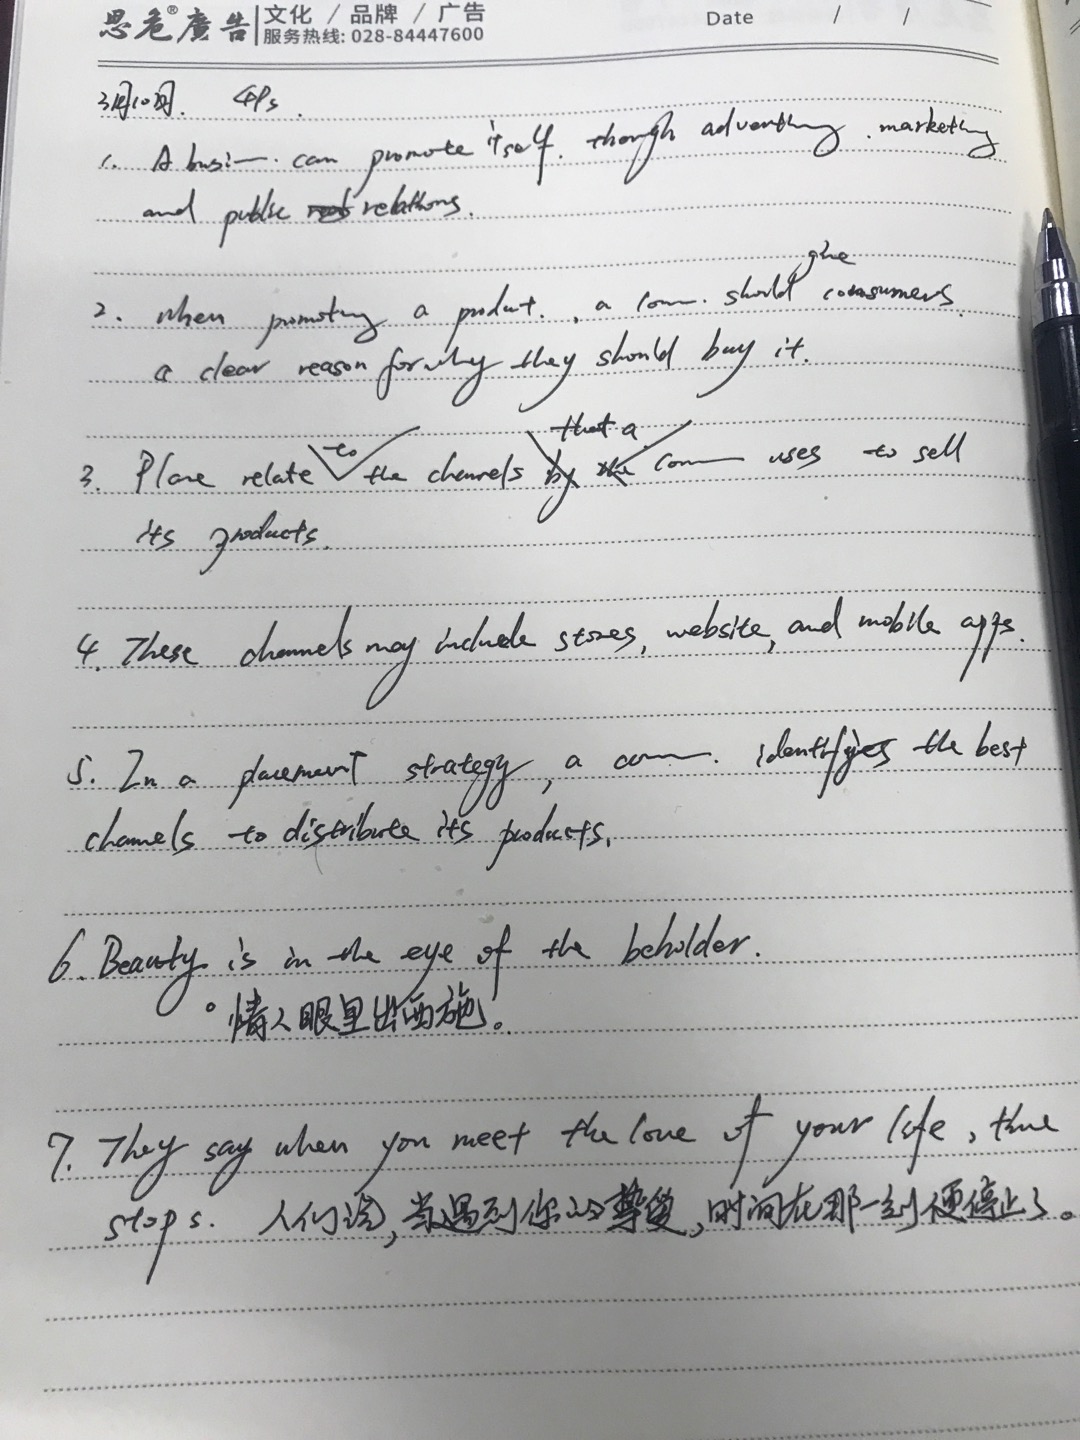 思危®廣告 文化 / 品牌 / 广告
服务热线: 028-84447600
Date / /
3月10日. 4Ps.
1. A busi—. can promote itself. though advertising. marketing
and public relations.
give
2. when promoting a product., a com—. should consumers
a clear reason for why they should buy it.
to that a
3. Place relate the channels by the com— uses to sell
its products.
4. These channels may include stores, website, and mobile apps.
5. In a placement strategy, a com—. identifyies the best
channels to distribute its products.
6. Beauty is in the eye of the beholder.
情人眼里出西施。
7. They say when you meet the love of your life, time
stops. 人们说,当遇到你的挚爱,时间在那一刻便停止了。